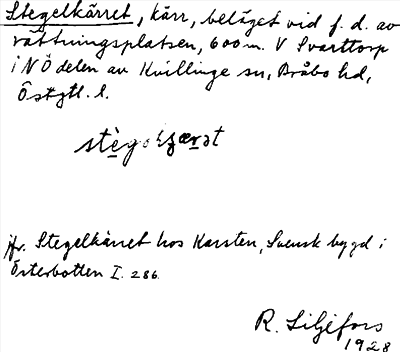 Stegelkärret, kärr, beläget vid f. d. av
rättningsplatsen, 600 m. V Svarttorp
i NÖ delen av Kvillinge sn, Bråbo hd,
Östgtl. l.
jfr. Stegelkärret hos Karsten, Svensk bygd i
Österbotten I. 286.
R. Liljefors
1928